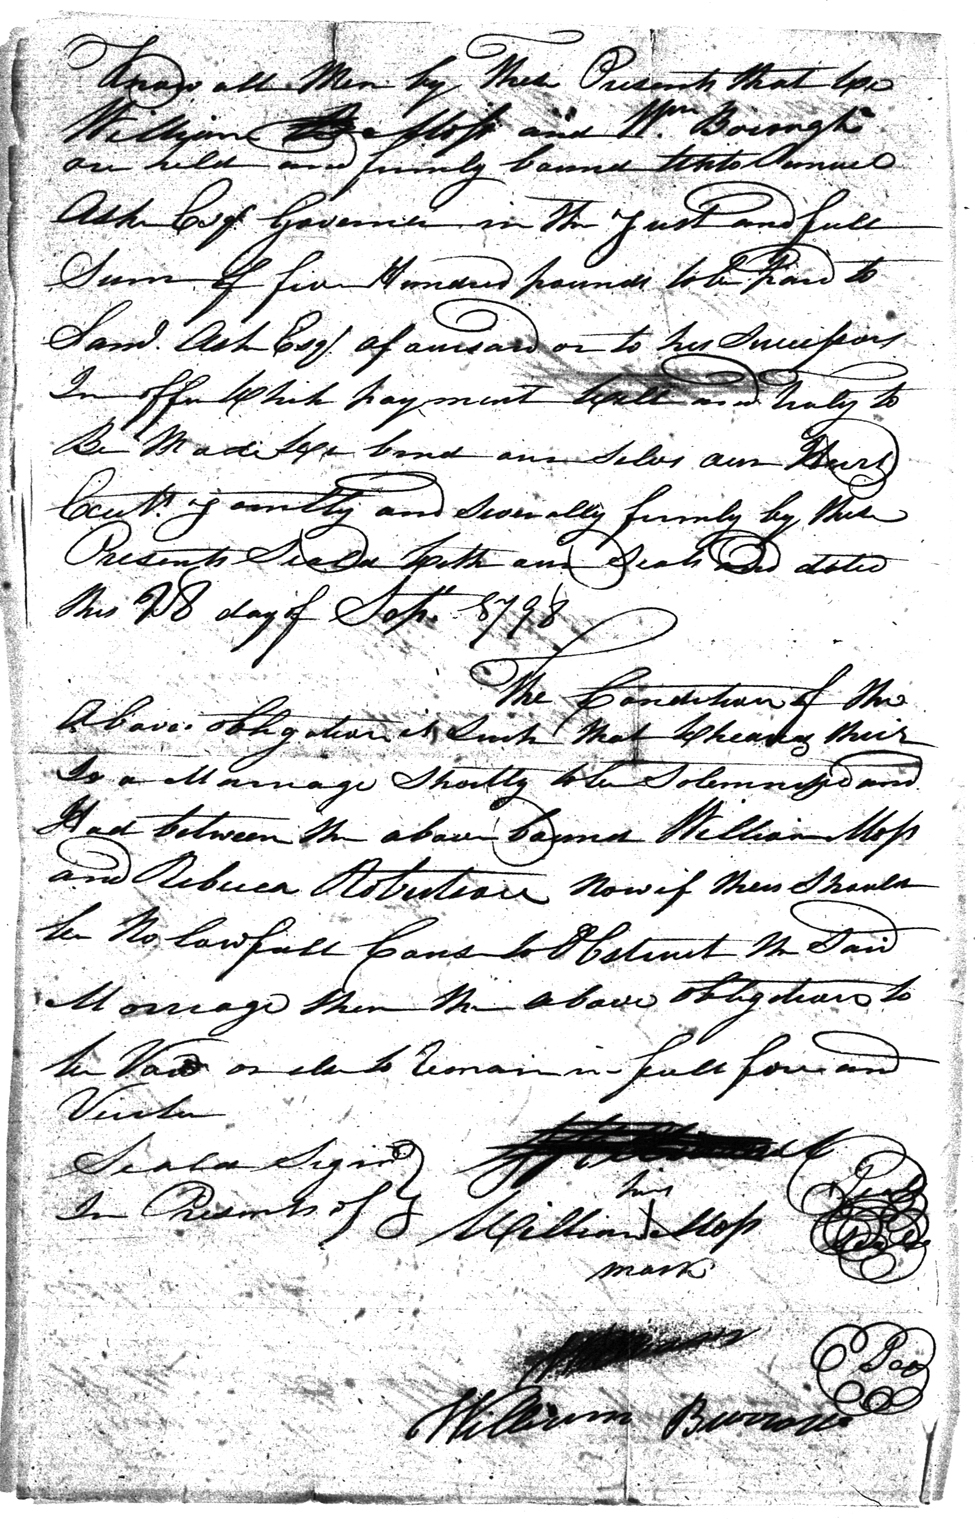 Know all Men by These Presents that We
William Moss and Wm. Borough
are held and firmly bound unto Samuel
Ash Esqr. Governer in the Just and full
Sum of five Hundred pounds to be paid to
Saml. Ash Esqr. afouresaid or to his Successors
In offis Which payment Well and truly to
Be Made We bind our selves our Heirs
Exutrs. Joinntly and severally firmly by these
Presents Seald With our Seals And dated
this 28 day of Sept. 1798
The Condition of the
Above obligation is Such that Wheareas their
Is a Marriage Shortly to be Solemnized and
Had between the above bound William Moss
and Rebecca Robertson Now if there Should
be No lawfull Caus to Obstruct the Said
Marriage then the above obligation to
be Void or else to Remain in full force and
Vertue
Seald Signd
In Presents of
his
William Moss
mark
William Burrows